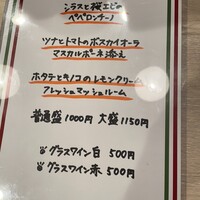 シラスと桜エビの
ペペロンチーノ
ツナとトマトのボスカイオーラ
マスカルポーネ添え
ホタテとキノコのレモンクリーム
フレッシュマッシュルーム
普通盛 1000円 大盛 1150円
グラスワイン 白 500円
グラスワイン 赤 500円